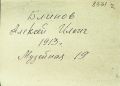 8521-2
Блинов
Алексей Ильич
1913г.
Музейная 19